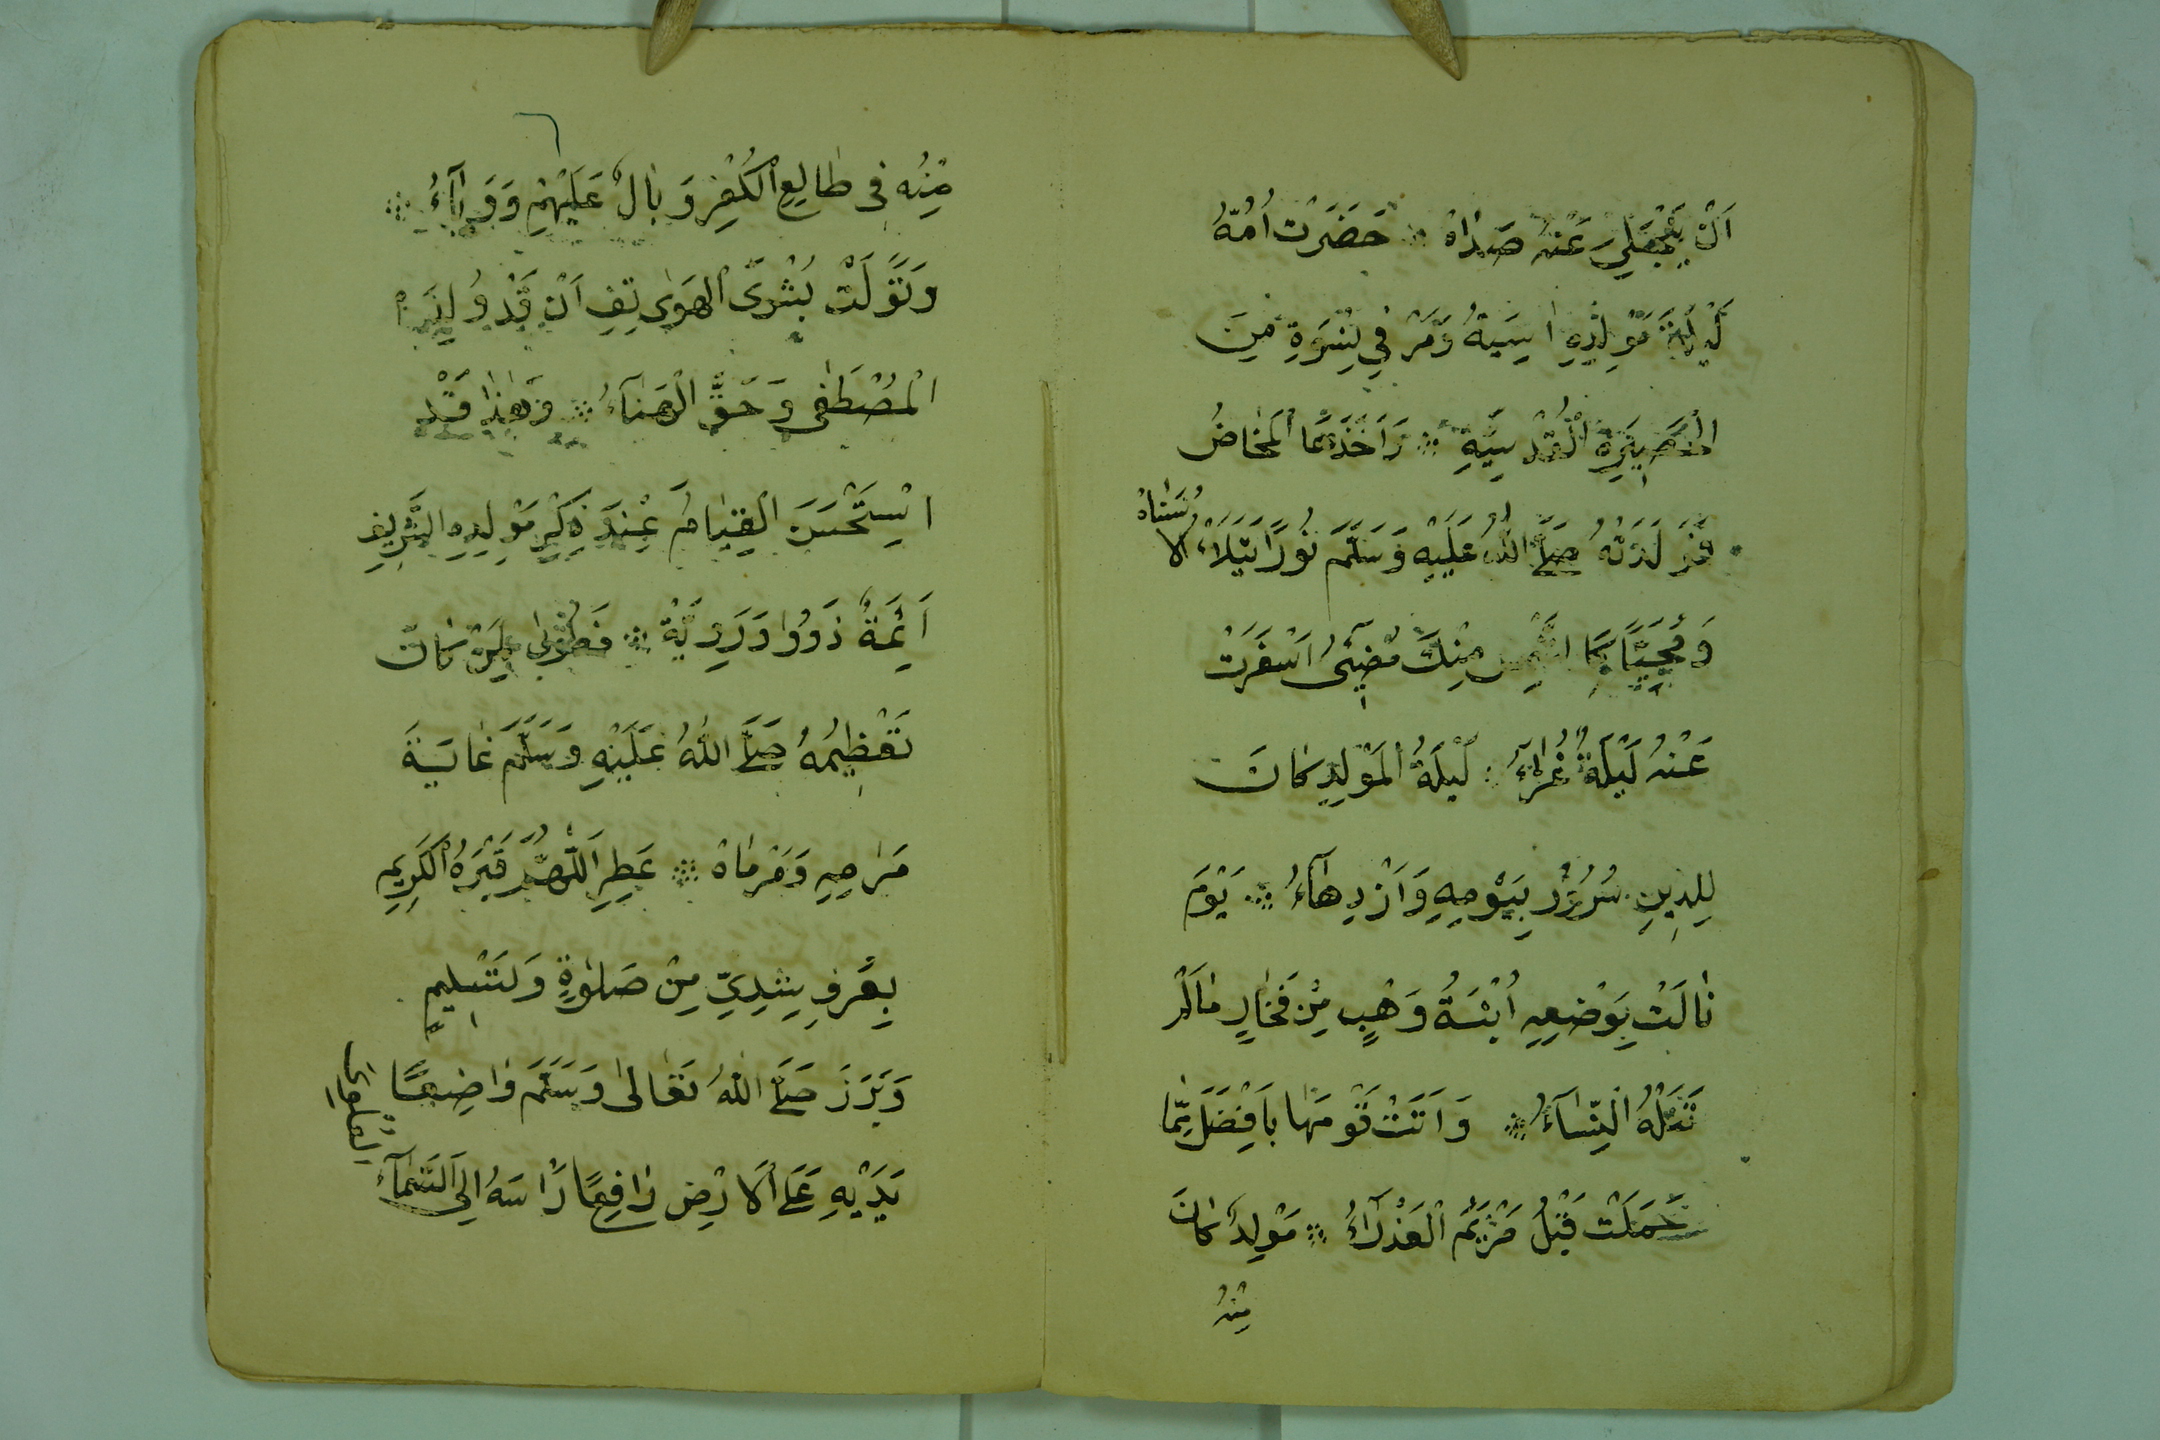 اَنْ يَنْجَلِيَ عَنْهُ صَدَاهُ ۞ حَضَرَتْ اُمَّهُ
لَيْلَةَ مَوْلِدِهِ اٰسِيَةُ وَمَرْ فِي نِسْوَةٍ مِنَ
الْحَضِيْرَةِ الْقُدْسِيَّةِ ۞ وَاَخَذَهَا الْمَخَاضُ
فَوَلَدَتْهُ صَلَّى اللهُ عَلَيْهِ وَسَلَّمَ نُوْرًا يَتَلَأْلَاُ سَنَاهُ
وَمُحَيًّا كَا الشَّمْسِ مِنْكَ مُضِيْئٌ اَسْفَرَتْ
عَنْهُ لَيْلَةٌ غَرَّاءُ ۞ لَيْلَةُ الْمَوْلِدِ كَانَ
لِلدِيْنِ سُرُوْرٌ بِيَوْمِهِ وَازْدِهَآءُ ۞ يَوْمَ
نَالَتْ بِوَضْعِهِ اُبْنَةُ وَهْبٍ مِنْ فَخَارٍ مَالَمْ
تَنَلْهُ النِّسَآءُ ۞ وَاَتَتْ قَوْمَهَا بِاَفْضَلَ مِمَّا
حَمَلَتْ قَبْلُ مَرْيَمُ الْعَذْرَآءُ ۞ مَوْلِدٌ كَانَ
مِنْهُ
مِنْهُ فِى طَالِعِ الْكُفْرِ وَبَالٌ عَلَيْهِمْ وَوَبَآءُ ۞
وَتَوَّلَتْ بُشْرَى الْهَوَاتِفِ اَنْ قَدْ وُلِدَ
الْمُصْطَفٰى وَحَقَّ الْهَنَآءُ ۞ وَهٰذَا قَدْ
اسْتَحْسَنَ الْقِيَامَ عِنْدَ ذِكْرِ مَوْلِدِهِ الشَّرِيْفِ
اَئِمَةٌ ذَوُوْا وَرَوِيَّةْ ۞ فَطُوْبٰى لِمَنْ كَانَ
تَعْظِيْمُهُ صَلَّى اللهُ عَلَيْهِ وَسَلَّمَ غَايَةَ
مَرَامِهِ وَمَرْمَاهُ ۞ عَطِّرِ اللّٰهُمَّ قَبْرَهُ الْكَرِيْمِ
بِعَرْفٍ شَذِيٍّ مِنْ صَلٰوةٍ وَتَسْلِيمٍ
وَبَرَزَ صَلَّى اللهُ تَعَالٰى وَسَلَّمَ وَاضِعًا
يَدَيْهِ عَلَى الْاَرْضِ رَافِعًا رَاْسَهُ اِلَى السَّمَآءِ